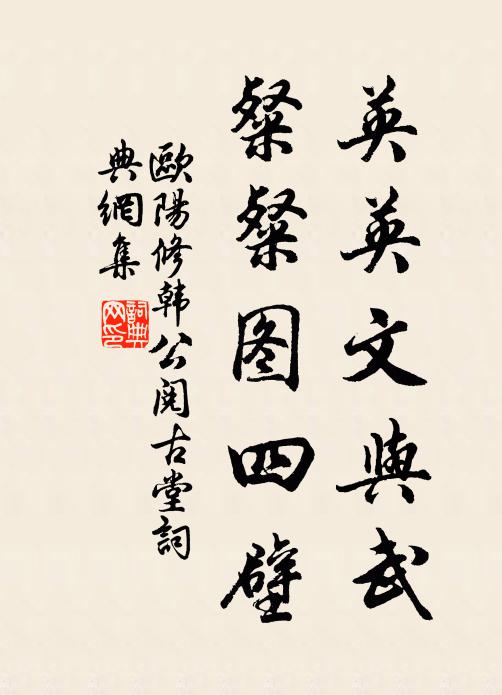 英英文與武
粲粲图四壁
歐陽修韩公阅古堂詞
典網集
詞典网印